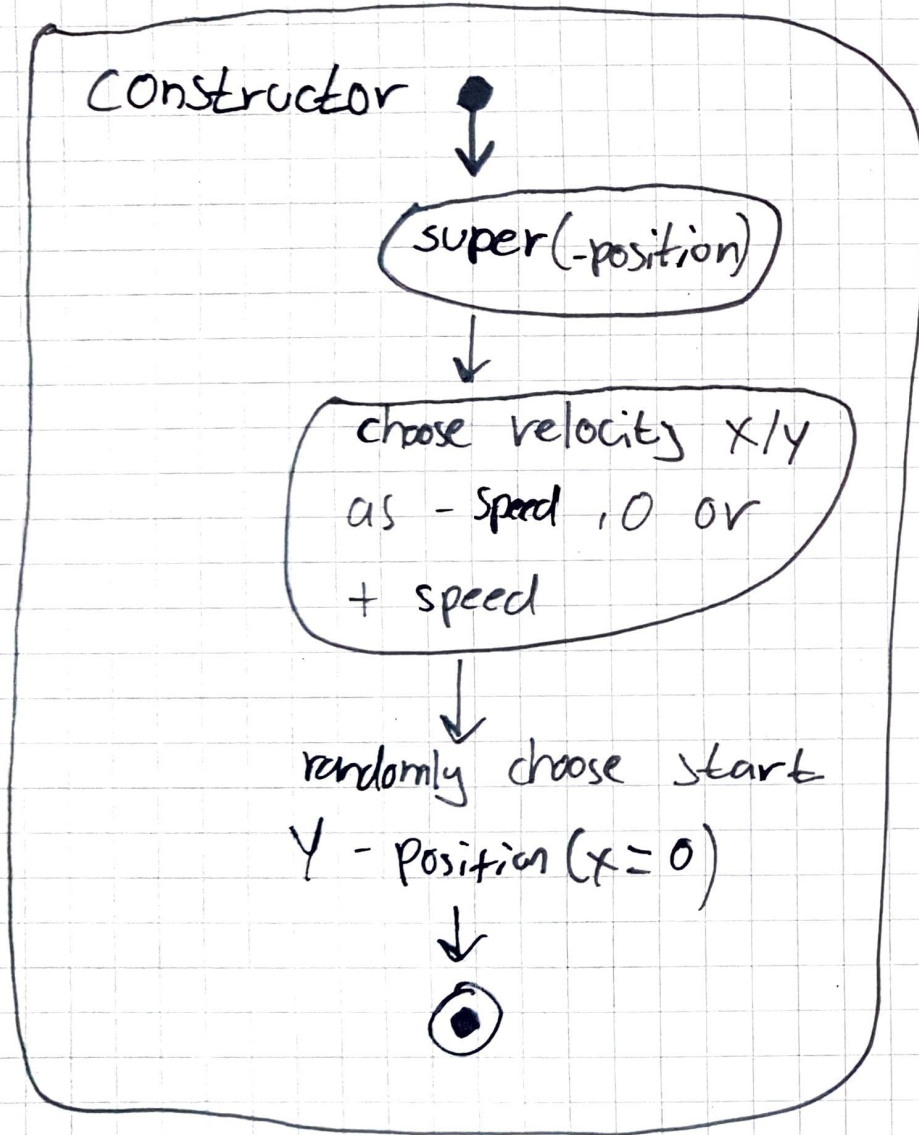 constructor
super(-position)
choose velocity x/y
as - speed , 0 or
+ speed
randomly choose start
Y - position (x = 0)